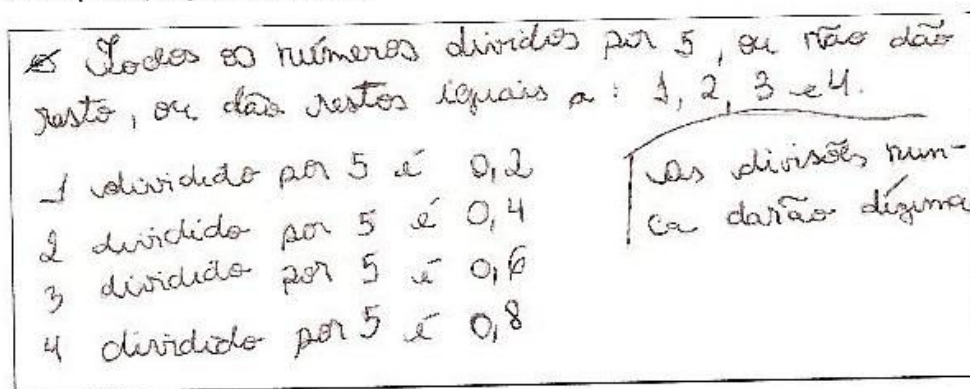 Todos os números dividos por 5, ou não dão
resto, ou dão restos iguais a: 1, 2, 3 e 4.
1 dividido por 5 é 0,2
2 dividido por 5 é 0,4
3 dividido por 5 é 0,6
4 dividido por 5 é 0,8
As divisões nun-
ca darão dízima